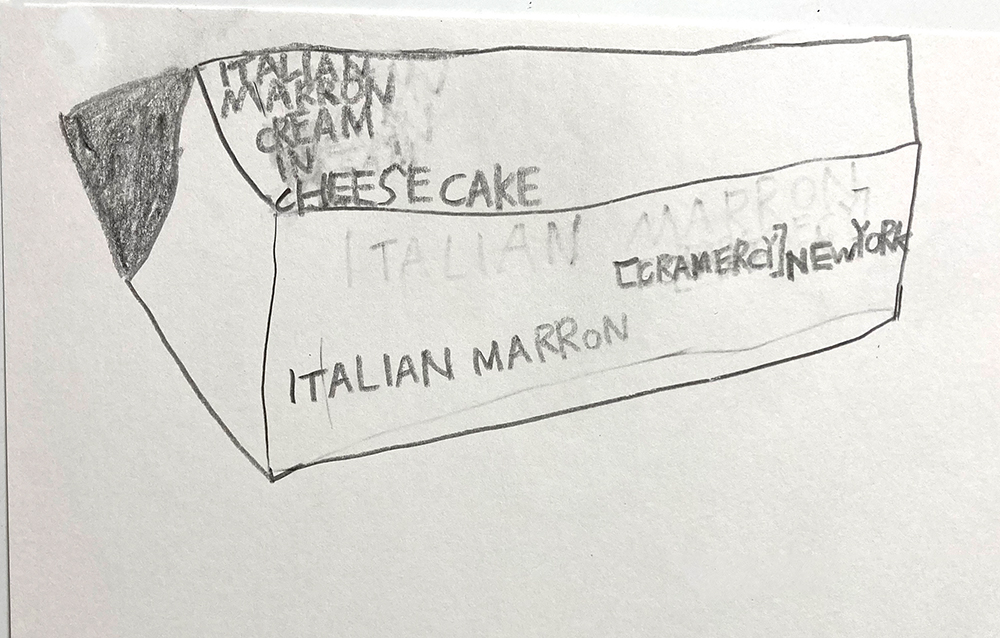 ITALIAN
MARRON
CREAM
IN
CHEESE CAKE
ITALIAN MARRON
[GRAMERCY] NEWYORK
ITALIAN MARRON